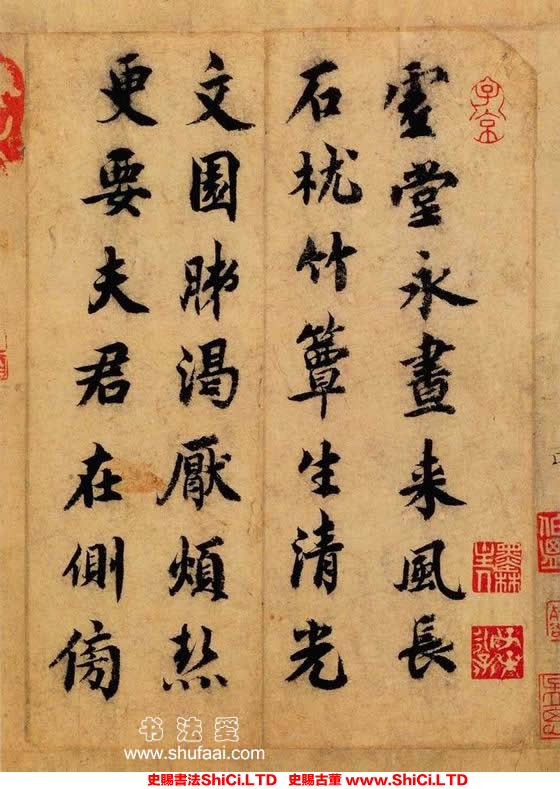 子京
虛堂永晝来風長
石枕竹簟生清光
文園肺渴厭煩熱
更要夫君在側傍
书法爱
www.shufaai.com
史賜書法ShiCi.LTD 史賜古董 www.ShiCi.LTD